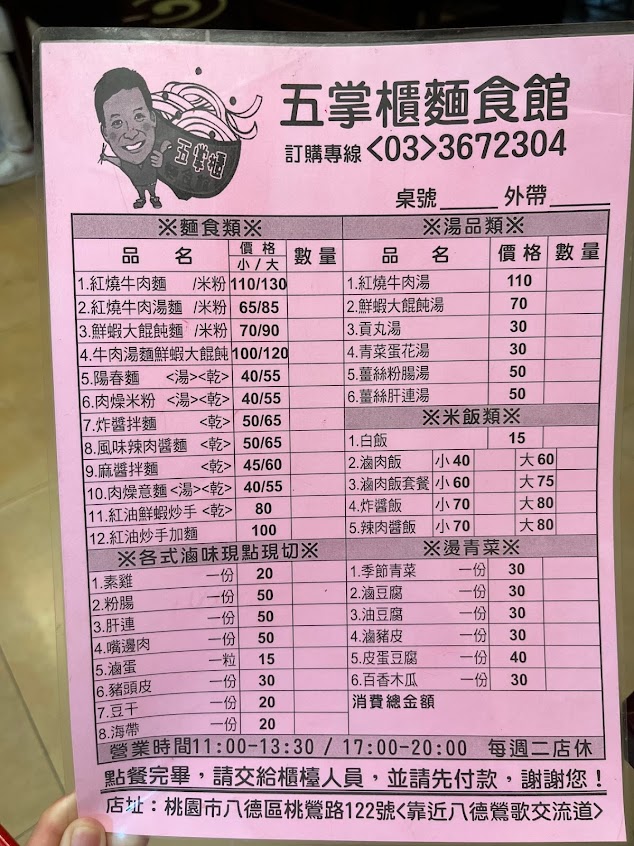 五掌櫃
五掌櫃麵食館
訂購專線<03>3672304
桌號 外帶
※麵食類※
品 名 價格 小/大 數量
1.紅燒牛肉麵 /米粉 110/130
2.紅燒牛肉湯麵 /米粉 65/85
3.鮮蝦大餛飩麵 /米粉 70/90
4.牛肉湯麵鮮蝦大餛飩 100/120
5.陽春麵 <湯><乾> 40/55
6.肉燥米粉 <湯><乾> 40/55
7.炸醬拌麵 <乾> 50/65
8.風味辣肉醬麵 <乾> 50/65
9.麻醬拌麵 <乾> 45/60
10.肉燥意麵<湯><乾> 40/55
11.紅油鮮蝦炒手<乾> 80
12.紅油炒手加麵 100
※各式滷味現點現切※
1.素雞 一份 20
2.粉腸 一份 50
3.肝連 一份 50
4.嘴邊肉 一份 50
5.滷蛋 一粒 15
6.豬頭皮 一份 30
7.豆干 一份 20
8.海帶 一份 20
※湯品類※
品 名 價格 數量
1.紅燒牛肉湯 110
2.鮮蝦大餛飩湯 70
3.貢丸湯 30
4.青菜蛋花湯 30
5.薑絲粉腸湯 50
6.薑絲肝連湯 50
※米飯類※
1.白飯 15
2.滷肉飯 小40 大60
3.滷肉飯套餐 小60 大75
4.炸醬飯 小70 大80
5.辣肉醬飯 小70 大80
※燙青菜※
1.季節青菜 一份 30
2.滷豆腐 一份 30
3.油豆腐 一份 30
4.滷豬皮 一份 30
5.皮蛋豆腐 一份 40
6.百香木瓜 一份 30
消費總金額
營業時間11:00-13:30 / 17:00-20:00 每週二店休
點餐完畢，請交給櫃檯人員，並請先付款，謝謝您！
店址：桃園市八德區桃鶯路122號<靠近八德鶯歌交流道>